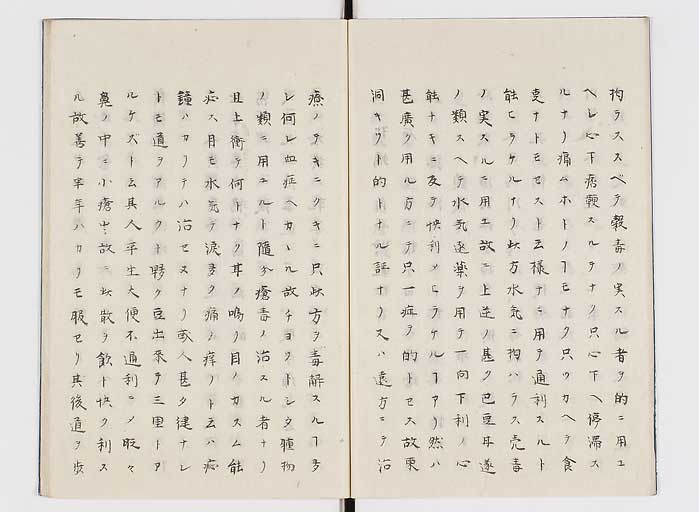 拘ラススベテ穀毒ノ実スル者ヲ的ニ用ユ
ヘレ心下痞鞕スルテナク只心下ヘ停滞ス
ルナリ痛ムホトノヿモナク只ツカヘテ食
ナトモセスト云様ナニ用テ通利スルト
能ヒラケルナリ此方水気ニ拘ハラス壳毒
ノ実スルニ用ユ故ニ上逆ノ甚ク巴豆耳遂
ノ類スヘテ水気逐薬ヲ用テ一向下利ノ心
能ナキニ反テ快利メヒラケルヿアリ然ハ
甚廣ク用ル方ニテ只一症ヲ的トセス故東
洞キラト的トナル証ナリ又ハ遠方ニテ治
療ノテキニクキニ只此方ヲ毒解スルヿ多
レ何レ血症ヘカヽル故チヨクトシタ腫物
ノ類ニ用ユルト隨分瘡毒ノ治スル者ナリ
且上衝テ何トナク耳ノ鳴リ目ノカスム能
応ス目モ水気テ涙多ク痛ノ痒リト云ハ応
鐘ハカリテハ治セヌナリ或人甚タ健ナレ
トモ道ヲアルクト夥ク豆出来テ三里トア
ルケズト云其人平生大便不通利ニノ眩々
鼻ノ中ニ小瘡出故ニ此散ヲ飲ト快ク利ス
ル故善テ半年ハカリモ服セリ其後道ヲ歩